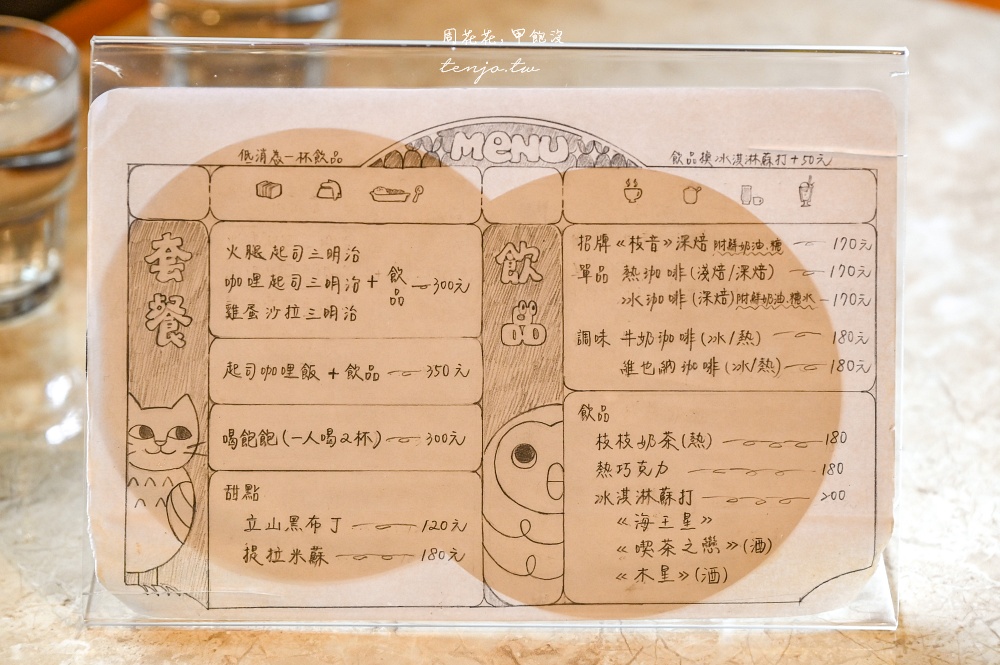 周花花,甲飽沒
tenjo.tw
MENU
低消為一杯飲品
飲品換冰淇淋蘇打+50元
套餐
火腿起司三明治
咖哩起司三明治+飲品 300元
雞蛋沙拉三明治
起司咖哩飯+飲品 350元
喝飽飽(一人喝2杯) 300元
甜點
立山黑布丁 120元
提拉米蘇 180元
飲品
招牌《枝音》深焙 附鮮奶油.糖 170元
單品 熱咖啡(淺焙/深焙) 170元
冰咖啡(深焙)附鮮奶油.糖水 170元
調味 牛奶咖啡(冰/熱) 180元
維也納咖啡(冰/熱) 180元
飲品
枝枝奶茶(熱) 180
熱巧克力 180
冰淇淋蘇打 200
《海王星》
《喫茶之戀》(酒)
《木星》(酒)